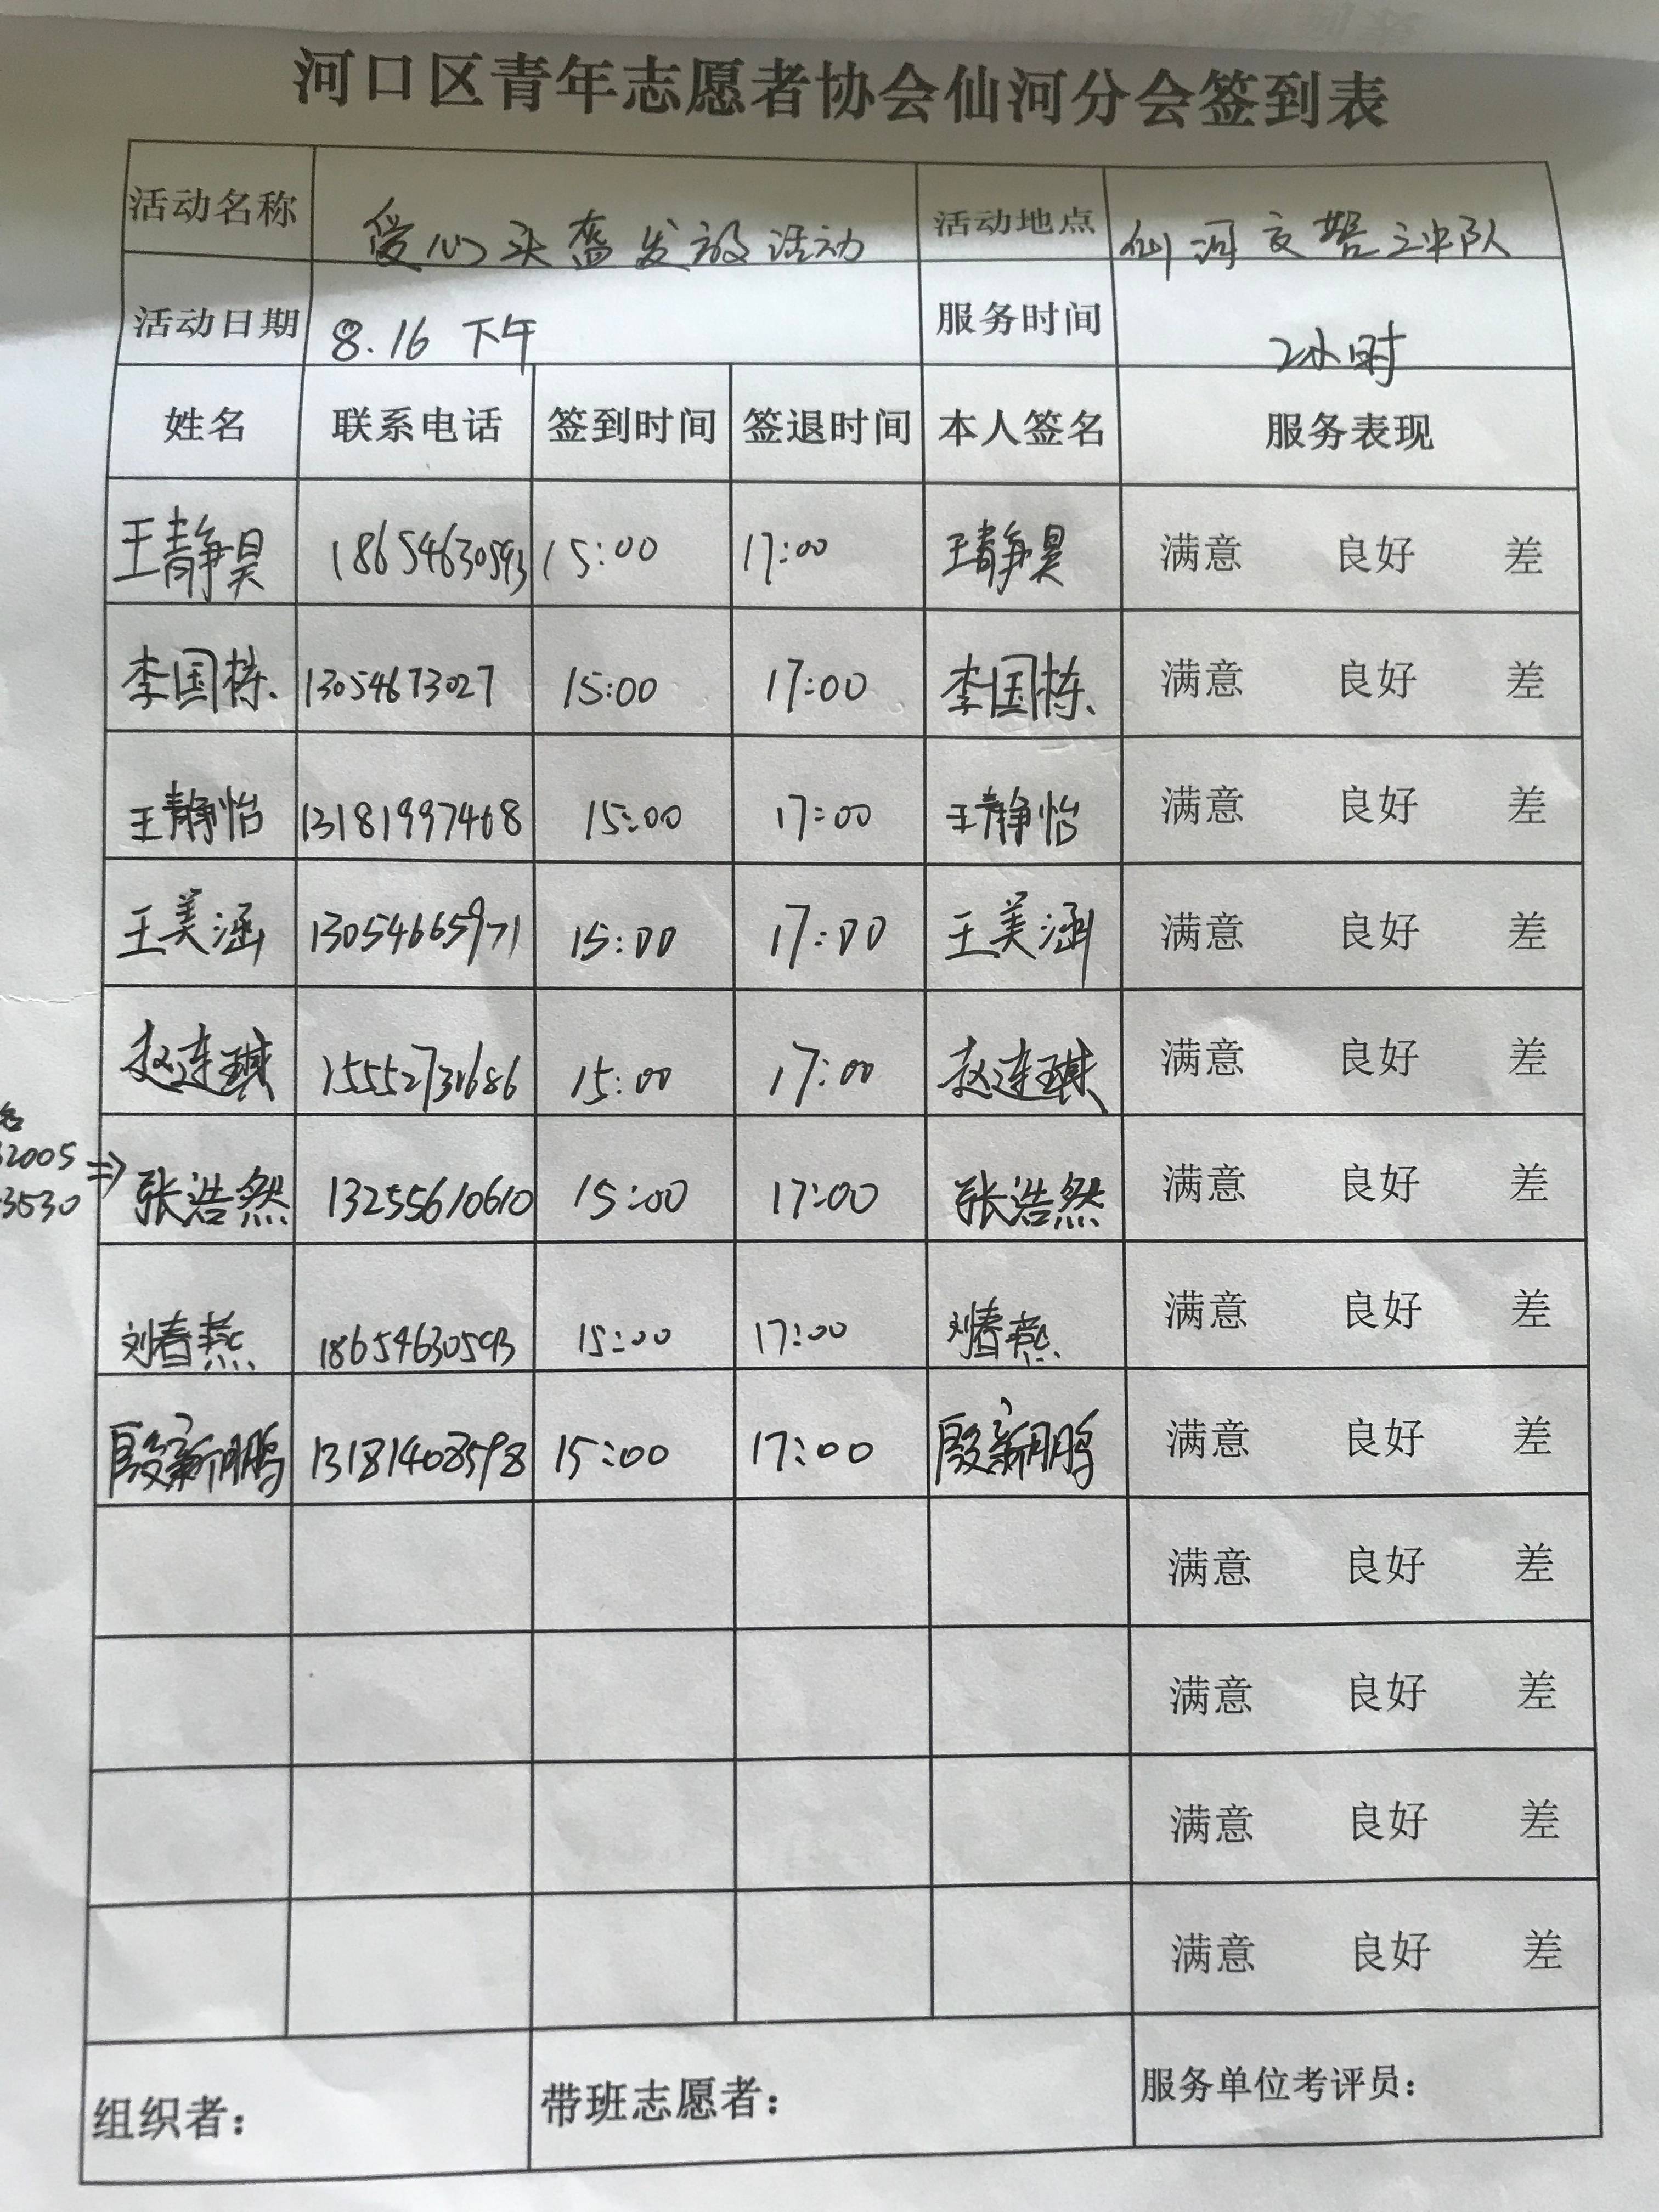 河口区青年志愿者协会仙河分会签到表
活动名称 爱心头盔发放活动 活动地点 仙河交警三中队
活动日期 8.16 下午 服务时间 2小时
姓名 联系电话 签到时间 签退时间 本人签名 服务表现
王静昊 18654630593 15:00 17:00 王静昊 满意 良好 差
李国栋 13054673027 15:00 17:00 李国栋 满意 良好 差
王静怡 13181997468 15:00 17:00 王静怡 满意 良好 差
王美涵 13054665971 15:00 17:00 王美涵 满意 良好 差
赵连琪 15552731686 15:00 17:00 赵连琪 满意 良好 差
名
32005 ⇒
3530
张浩然 13255610610 15:00 17:00 张浩然 满意 良好 差
刘春燕 18654630593 15:00 17:00 刘春燕 满意 良好 差
殷新鹏 13181408598 15:00 17:00 殷新鹏 满意 良好 差
满意 良好 差
满意 良好 差
满意 良好 差
满意 良好 差
组织者： 带班志愿者： 服务单位考评员：